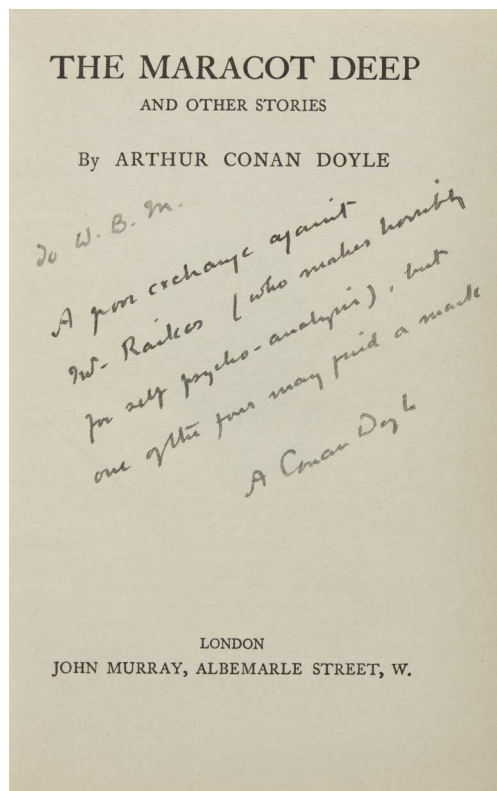 THE MARACOT DEEP
AND OTHER STORIES
By ARTHUR CONAN DOYLE
To W. B. M.
A poor exchange against
Mr. Raikes (who makes horribly
for self psycho-analysis), but
one of the four may find a mark
A Conan Doyle
LONDON
JOHN MURRAY, ALBEMARLE STREET, W.